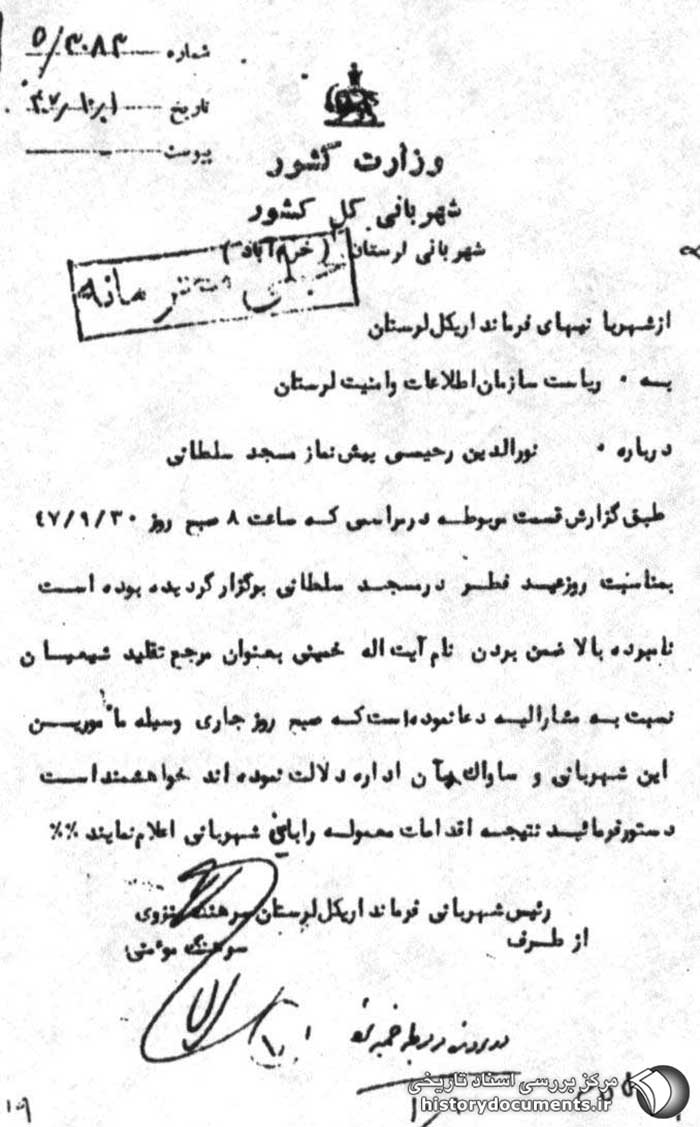 شماره ۵/۳۰۸۳
تاریخ
پیوست
وزارت کشور
شهربانی کل کشور
شهربانی لرستان (خرم‌آباد)
از شهربانیهای فرمانداریکل لرستان
به ۰ ریاست سازمان اطلاعات و امنیت لرستان
درباره ۰ نورالدین رحیمی پیش‌نماز مسجد سلطانی
طبق گزارش قسمت مربوطه در مراسمی که ساعت ۸ صبح روز ۴۷/۹/۳۰
بمناسبت روز عید فطر در مسجد سلطانی برگزار گردیده بوده است
نامبرده بالا ضمن بردن نام آیت اله خمینی بعنوان مرجع تقلید شیعیان
نسبت به مشارالیه دعا نموده است که صبح روز جاری وسیله مأمورین
این شهربانی و ساواک بآن اداره دلالت نموده اند خواهشمند است
دستور فرمائید نتیجه اقدامات معموله را باین شهربانی اعلام نمایند %%
رئیس شهربانی فرمانداریکل لرستان سرهنگ
از طرف سرهنگ مؤمنی
مرکز بررسی اسناد تاریخی
historydocuments.ir